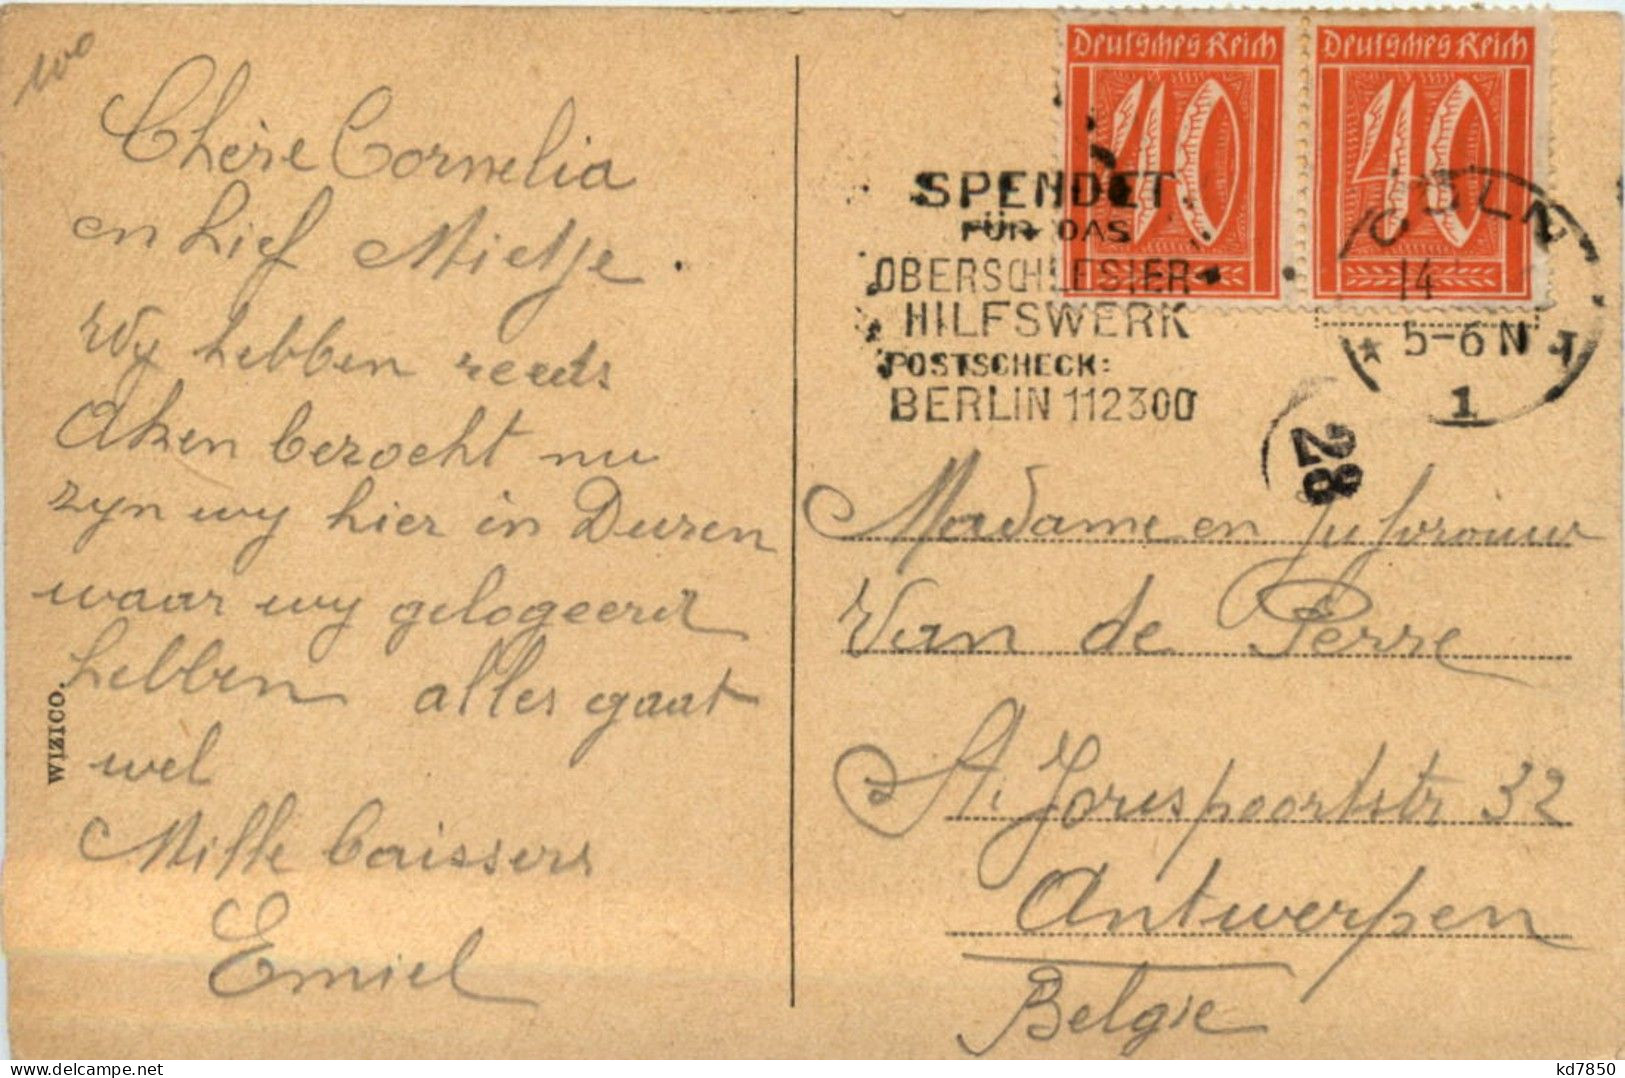 100
Chère Cornelia
en Lief Mietje.
Wy hebben reeds
Aken bezocht nu
zyn wy hier in Duren
waar wy gelogeerd
hebben alles gaat
wel
Mille baissers
Emiel
WIZICO.
Deutsches Reich
40
Deutsches Reich
40
SPENDET
FÜR DAS
OBERSCHLESIER-
HILFSWERK
POSTSCHECK:
BERLIN 112300
CÖLN
14
5-6 N
1
28
Madame en Jufvrouw
Van de Perre
St. Jorispoortstr 32
Antwerpen
Belgie
kd7850